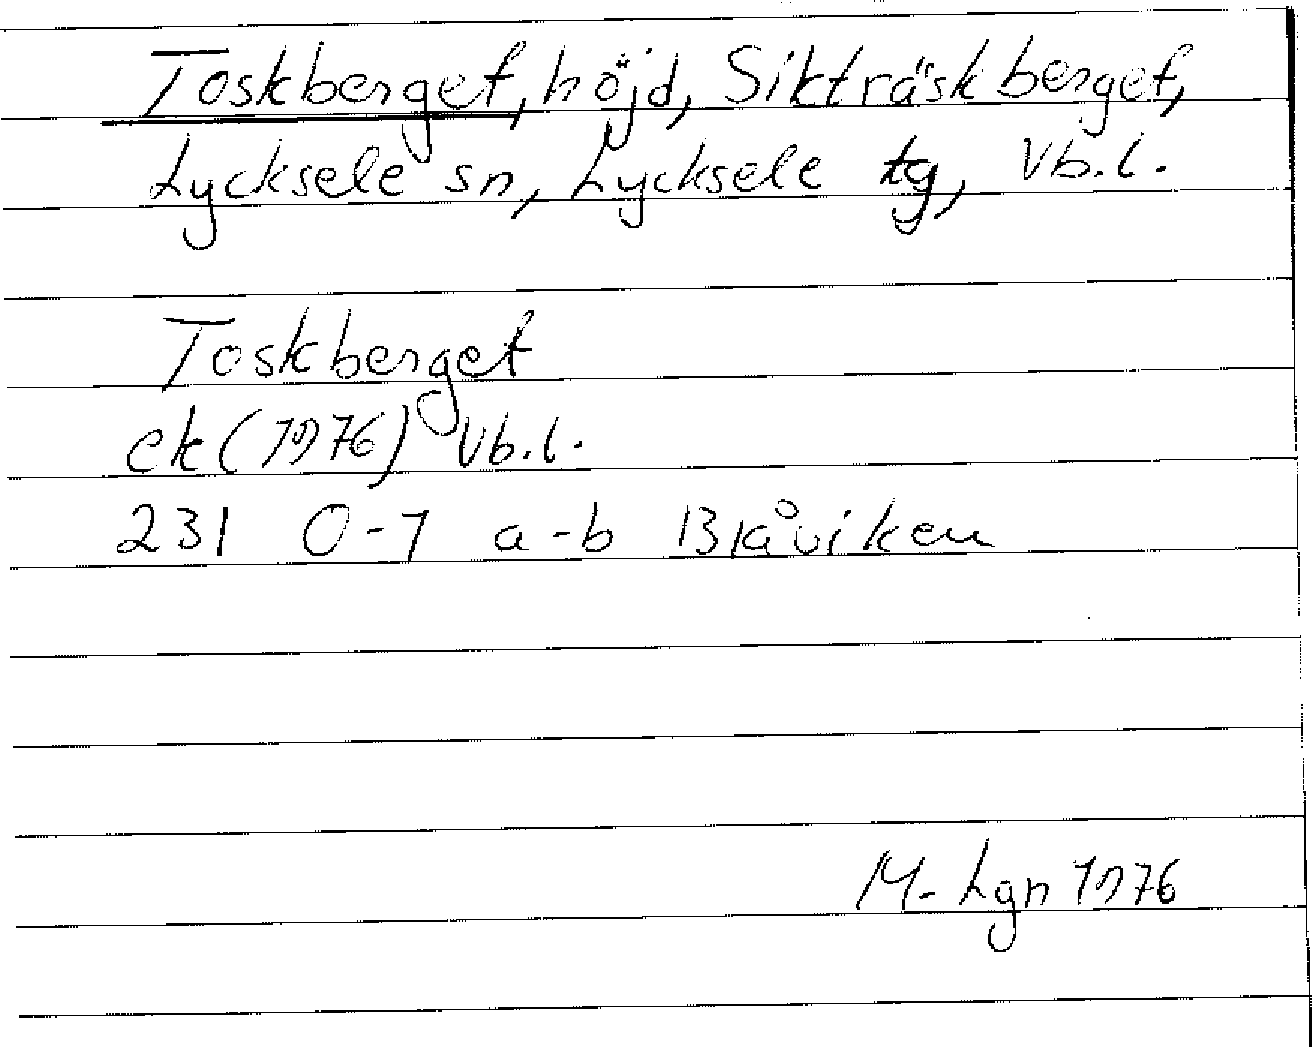 Toskberget, höjd, Sikträskberget,
Lycksele sn, Lycksele tg, Vb.l.
Toskberget
ek (1976) Vb.l.
231 0-1 a-b Blåviken
M. Lgn 1976